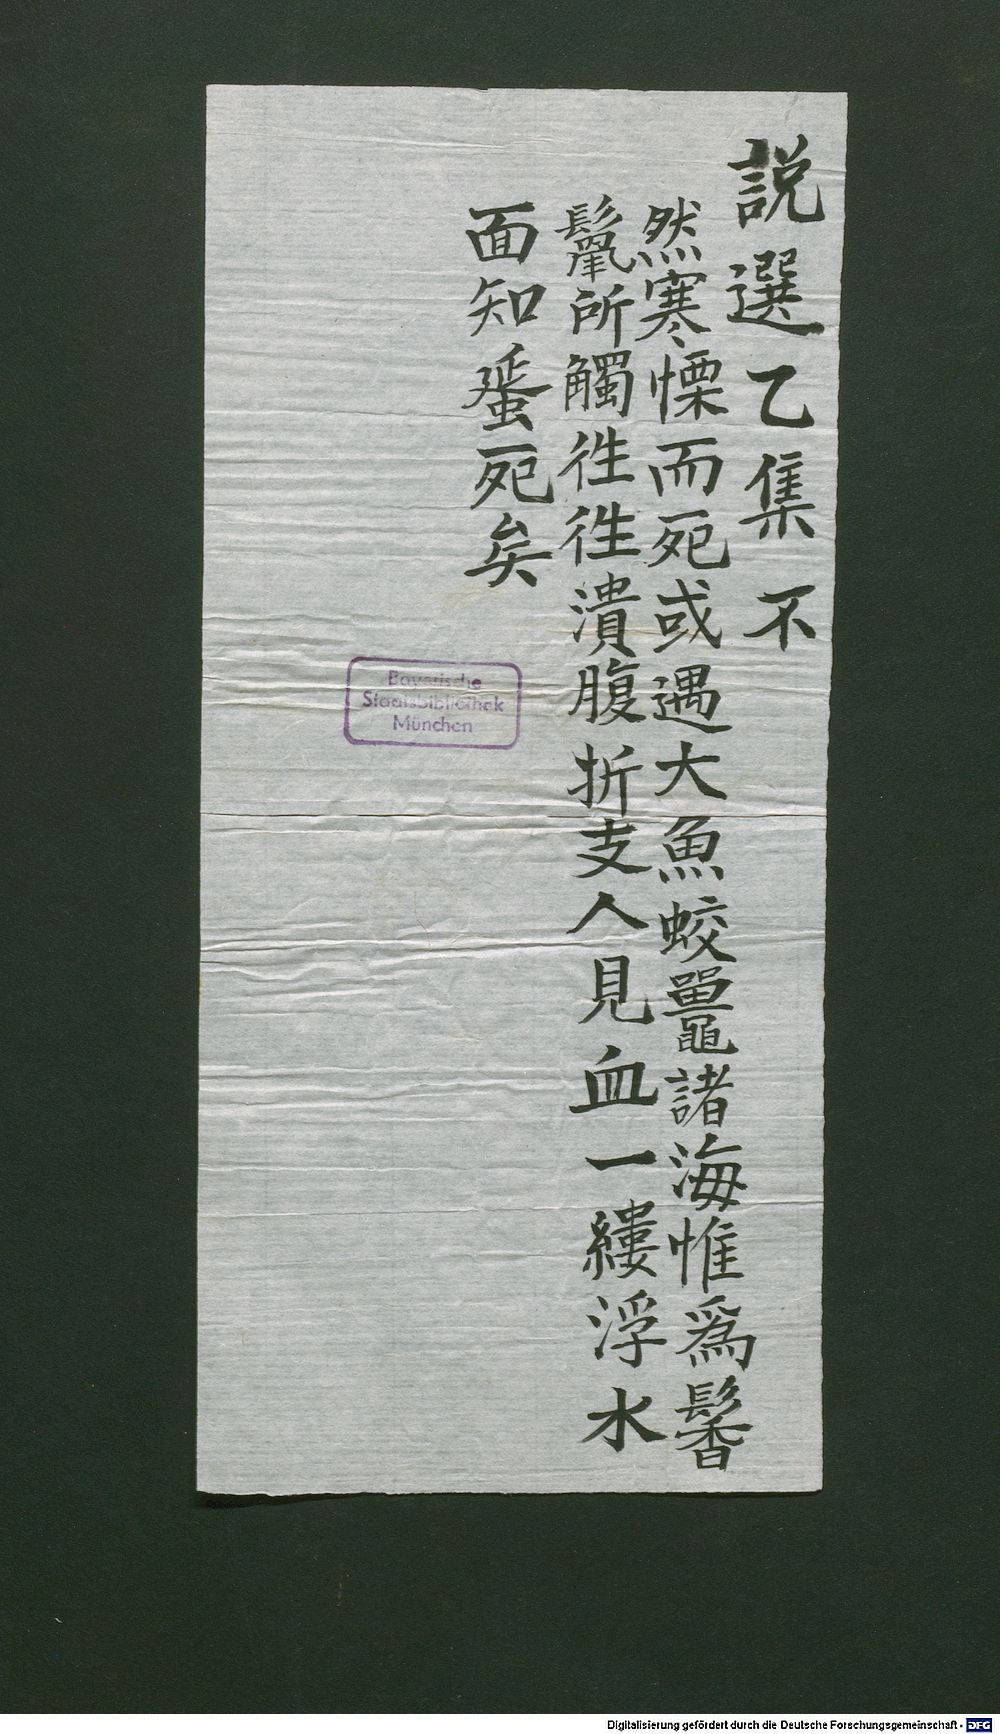 説選乙集不
然寒慄而死或遇大魚蛟鼉諸海惟爲鬐
鬣所觸徃徃潰腹折支人見血一縷浮水
面知蜑死矣
Bayerische
Staatsbibliothek
München
Digitalisierung gefördert durch die Deutsche Forschungsgemeinschaft - DFG